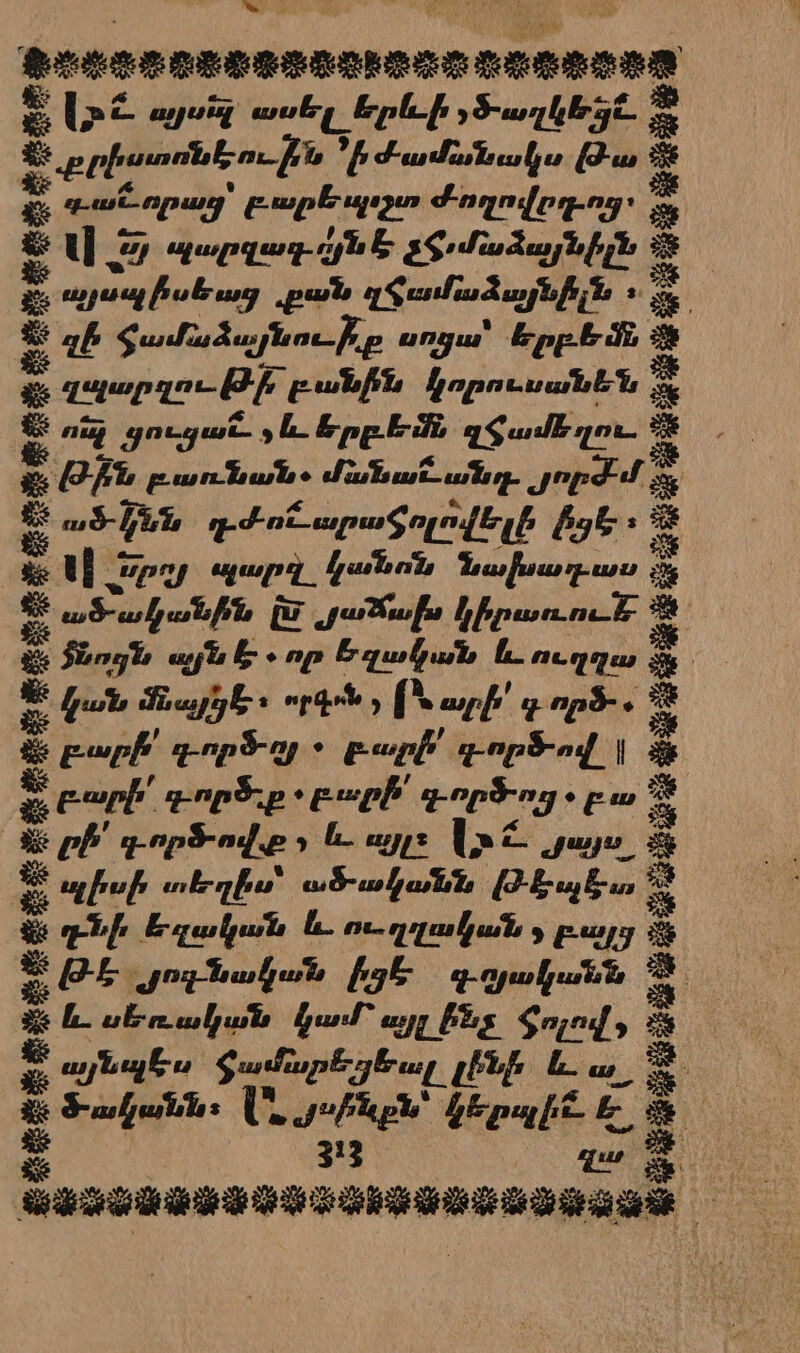 այսպ ասել երևի, ծաղկեցէ
քրիստոնեու՟ին ՚ի ժամանակս թա
գաւորաց՝ բարեպշտ ժողովրդոց.
պարզագոյն է չհմաձայնիլն
այսպիսեաց քան զհամաձայնիլն ։
զի համաձայնու՟իք սոցա՝ երբեմն
զպարզու՟թի բանին կորուսանեն
ոպ ցուցաւ, և երբեմն զհամեղու
թին բառնան. մանաւանդ յորժմ
ածկնն դժուարահոլովելի իցէ ։
պարզ կանոն նախադաս
ածականին յաճախ կիրառու
հնոցն այն է. որ եզական և ուղղա
կան մնայցէ ։ որգոն, բարի՛ գործ.
բարի՛ գործոյ. բարի՛ գործով ‖
բարի՛ գործք. բարի՛ գործոց. բա
րի՛ գործովք, և այլ։ յայս
պիսի տեղիս՝ ածականն թէպէտ
դնի եզական և ուղղական, բայց
թէ յոգնական իցէ գոյականն
և սեռական կամ այլ ինչ հոլով,
այնպէս համարեցեալ լինի և ա
ծականն։ յսինքն՝ կերպիւ է
313 զա